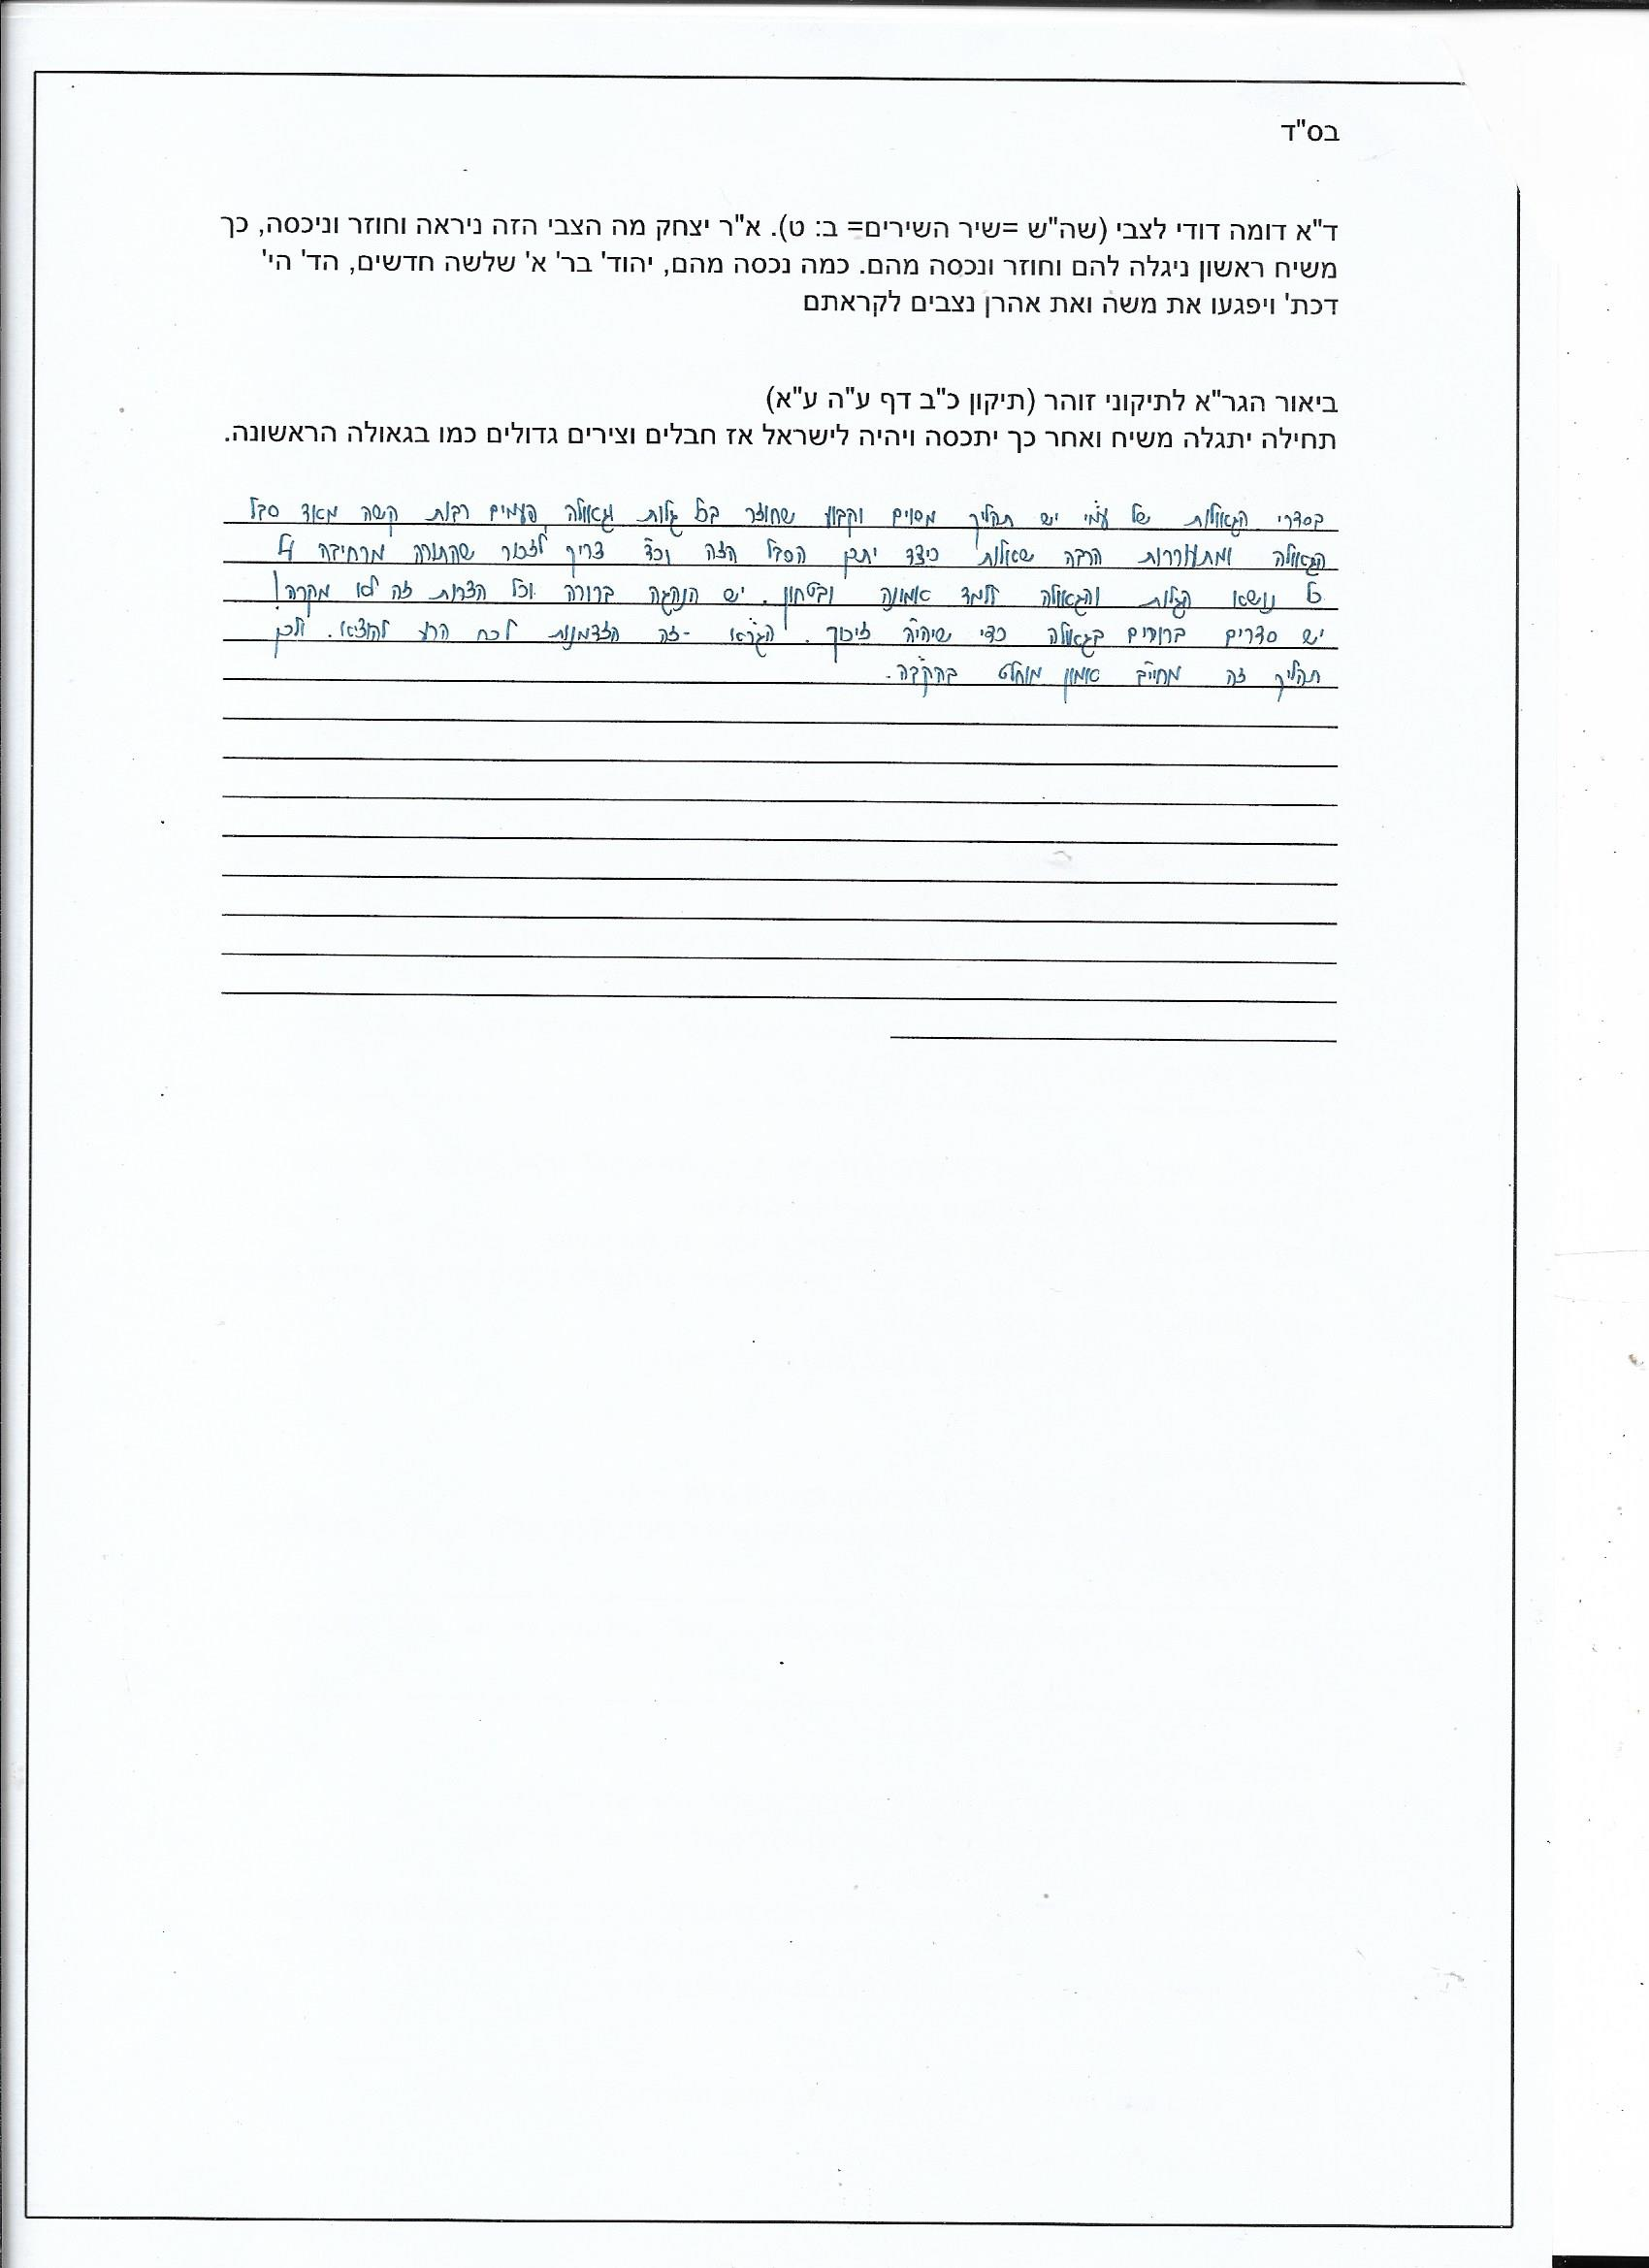 בס"ד
ד"א דומה דודי לצבי (שה"ש =שיר השירים= ב: ט). א"ר יצחק מה הצבי הזה ניראה וחוזר וניכסה, כך
משיח ראשון ניגלה להם וחוזר ונכסה מהם. כמה נכסה מהם, יהוד' בר' א' שלשה חדשים, הד' הי'
דכת' ויפגעו את משה ואת אהרן נצבים לקראתם
ביאור הגר"א לתיקוני זוהר (תיקון כ"ב דף ע"ה ע"א)
תחילה יתגלה משיח ואחר כך יתכסה ויהיה לישראל אז חבלים וצירים גדולים כמו בגאולה הראשונה.
בסדרי הגאולות של עמ"י יש תהליך מסוים וקבוע שחוזר בכל גלות וגאולה, פעמים רבות קשה מאוד סבל
הגאולה ומתעוררות הרבה שאלות כיצד יתכן הסבל הזה וכד' צריך לזכור שהתורה מרחיבה על
כל נושא הגלות והגאולה ללמד אמונה ובטחון. יש הנהגה ברורה וכל הצרות זה לא מקרה!
יש סדרים ברורים בגאולה כדי שיהיה זיכוך. הגר"א - זה הזדמנות לכח הרע להוציא. ולכן
תהליך זה מחייב אמון מוחלט בהקב"ה.